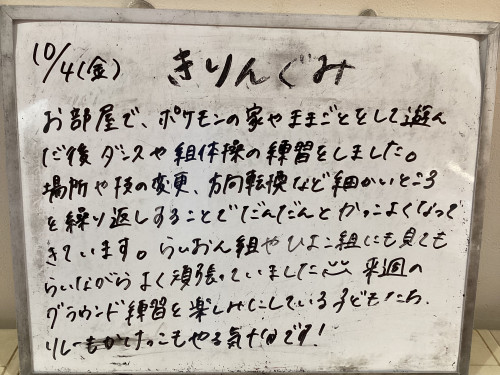 10/4(金)
きりんぐみ
お部屋で、ポケモンの家やままごとをして遊ん
だ後ダンスや組体操の練習をしました。
場所や技の変更、方向転換など細かいところ
を繰り返しすることでだんだんとかっこよくなって
きています。らいおん組やひよこ組にも見ても
らいながらよく頑張っていました 来週の
グラウンド練習を楽しみにしている子どもたち。
リレーもかけっこもやる気十分です!